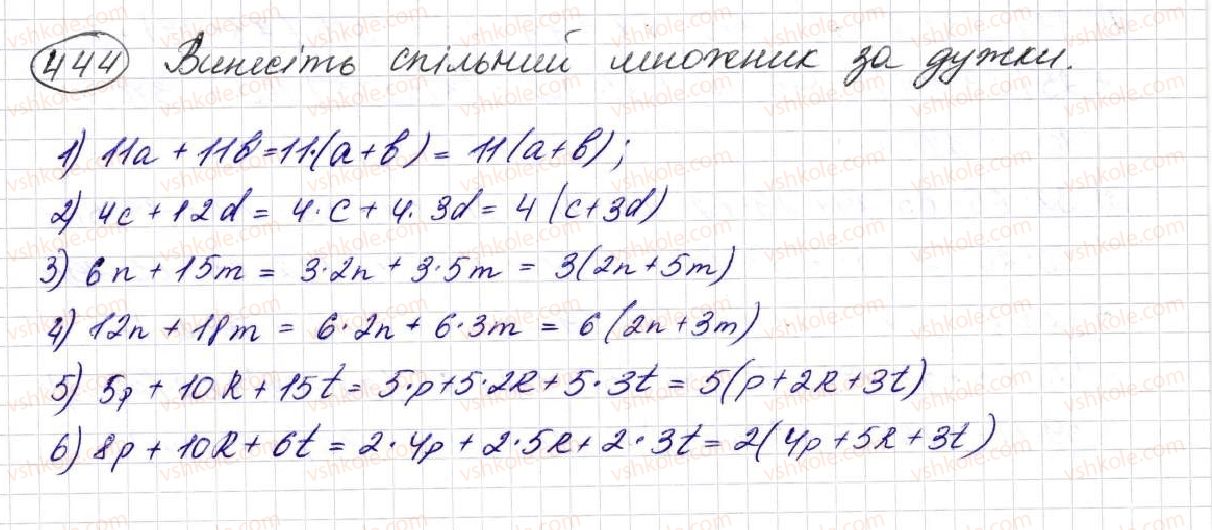 444 Винесіть спільний множник за дужки.
1) 11a + 11b = 11·(a + b) = 11(a + b);
2) 4c + 12d = 4·c + 4·3d = 4(c + 3d)
3) 6n + 15m = 3·2n + 3·5m = 3(2n + 5m)
4) 12n + 18m = 6·2n + 6·3m = 6(2n + 3m)
5) 5p + 10k + 15t = 5·p + 5·2k + 5·3t = 5(p + 2k + 3t)
6) 8p + 10k + 6t = 2·4p + 2·5k + 2·3t = 2(4p + 5k + 3t)